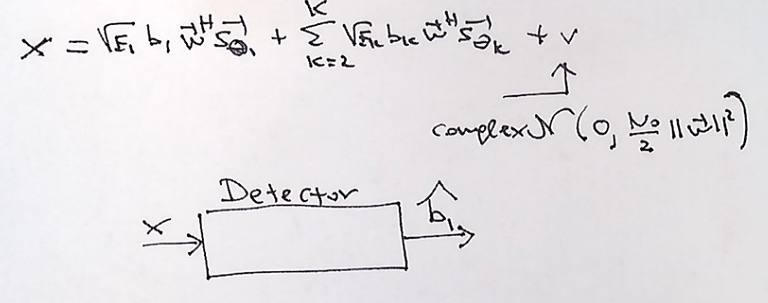 x = √E₁ b₁ w⃗ᴴ s⃗_θ₁ + Σ_{k=2}^{K} √E_k b_k w⃗ᴴ s⃗_θ_k + v
complex N(0, N₀/2 ||w⃗||²)
Detector
x
b̂₁